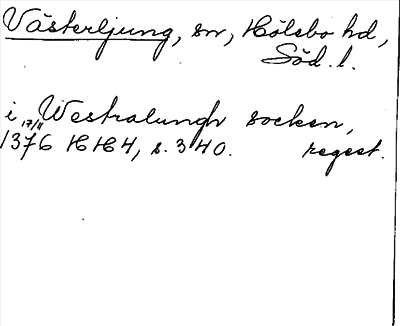 Västerljung, sn, Hölebo hd,
Söd. l.
i Westralungh socken,
17/11
1376 HH4, s. 340. regest.